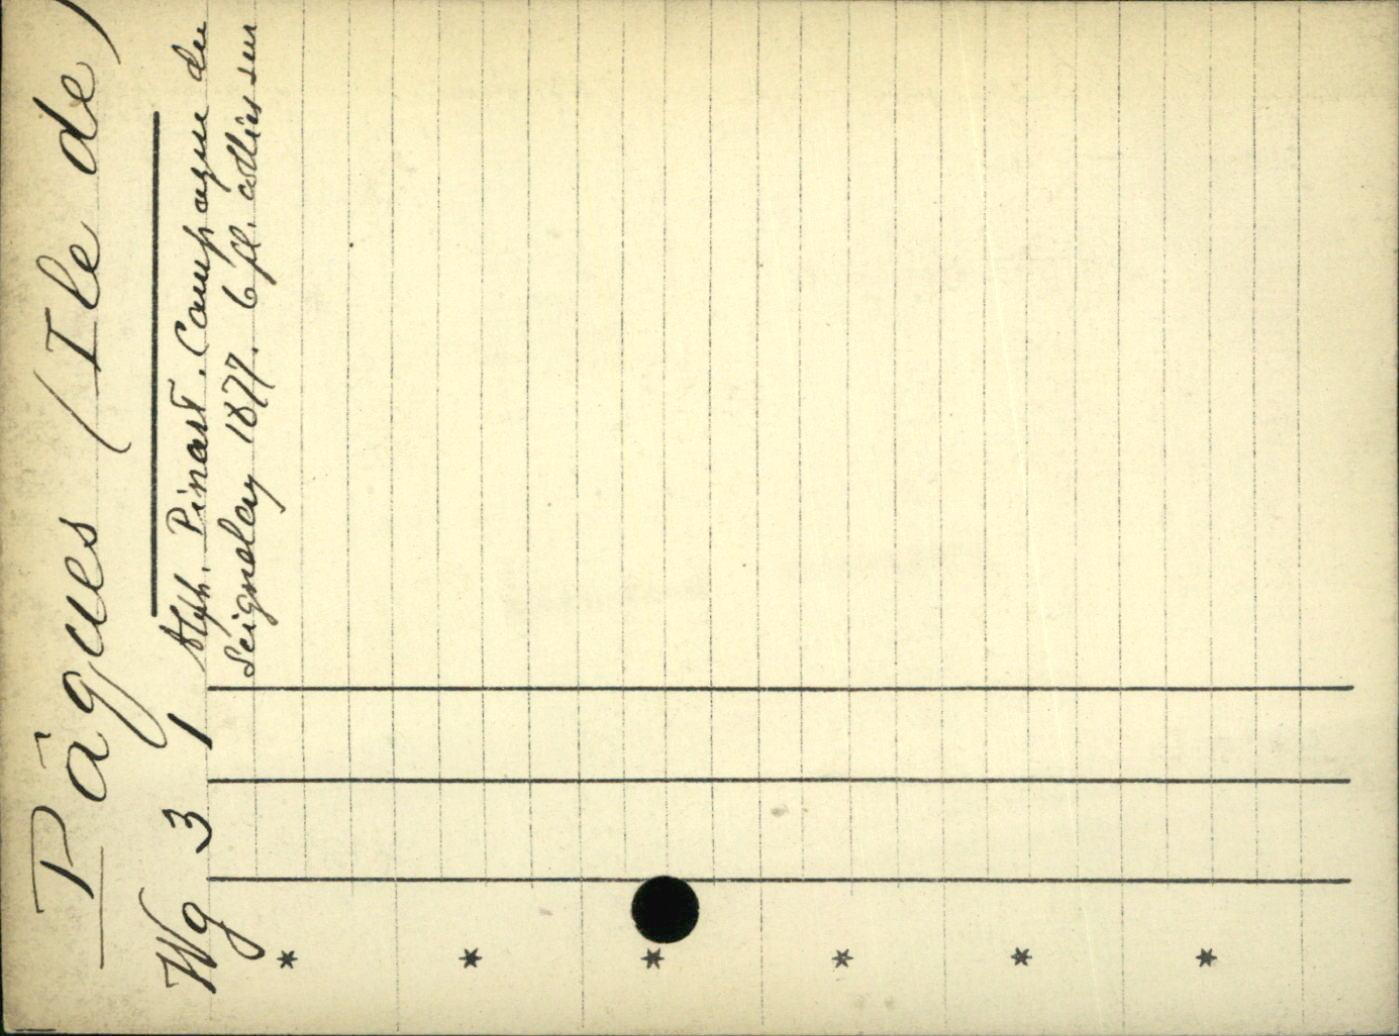 Pâques (Ile de)
Wg 3 1 Alph. Pinart. Campagne du
Seignelay 1877. 6 fl. collées sur
*
*
*
*
*
*